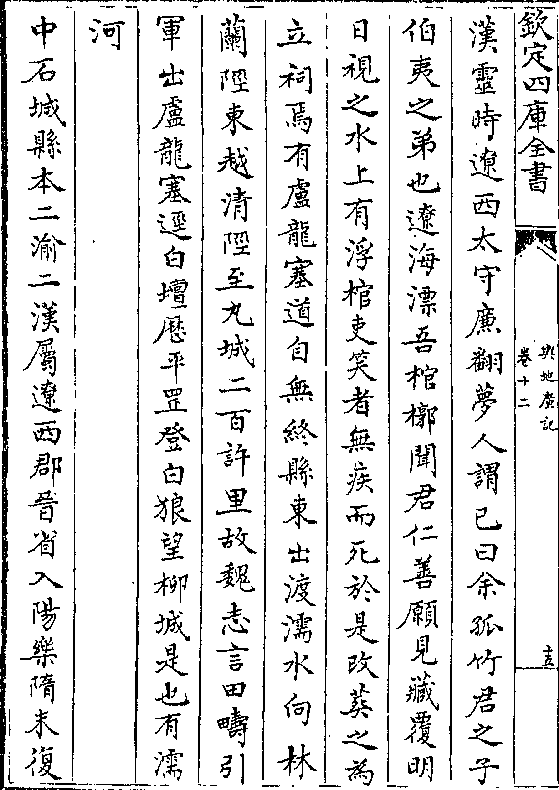 欽定四庫全書
輿地廣記
卷十二
十五
漢靈時遼西太守廉翻夢人謂已曰余孤竹君之子
伯夷之弟也遼海漂吾棺槨聞君仁善願見藏覆明
日視之水上有浮棺吏笑者無疾而死於是改葬之為
立祠焉有盧龍塞道自無終縣東出渡濡水向林
蘭陘東越清陘至九城二百許里故魏志言田疇引
軍出盧龍塞逕白壇厯平罡登白狼望柳城是也有濡
河
中石城縣本二渝二漢屬遼西郡晉省入陽樂隋末復